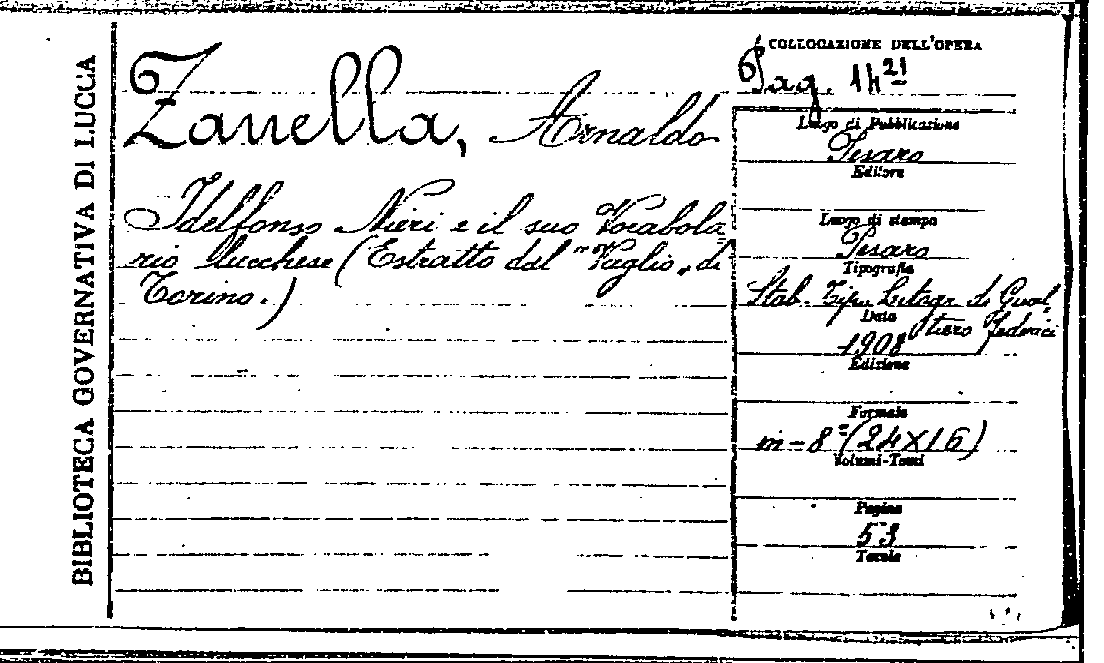 BIBLIOTECA GOVERNATIVA DI LUCCA
Zanella, Arnaldo
Idelfonso Nieri e il suo Vocabola=
rio lucchese (Estratto dal "Vaglio„ di
Torino.)
COLLOCAZIONE DELL'OPERA
14 21
Luogo di Pubblicazione
Pesaro
Editore
Luogo di stampa
Pesaro
Tipografia
Stab. Tipo Litogr. di Gual=
tiero Federici
Data
1908
Edizione
Formato
in-8° (24X16)
Volumi-Tomi
Pagine
53
Tavole